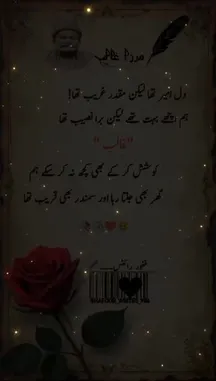 مرزا غالب
دل امیر تھا لیکن مقدر غریب تھا!
ہم اچھے بہت تھے لیکن برا نصیب تھا
"غالب"
کوشش کر کے بھی کچھ نہ کر سکے ہم
گھر بھی جلتا رہا اور سمندر بھی قریب تھا